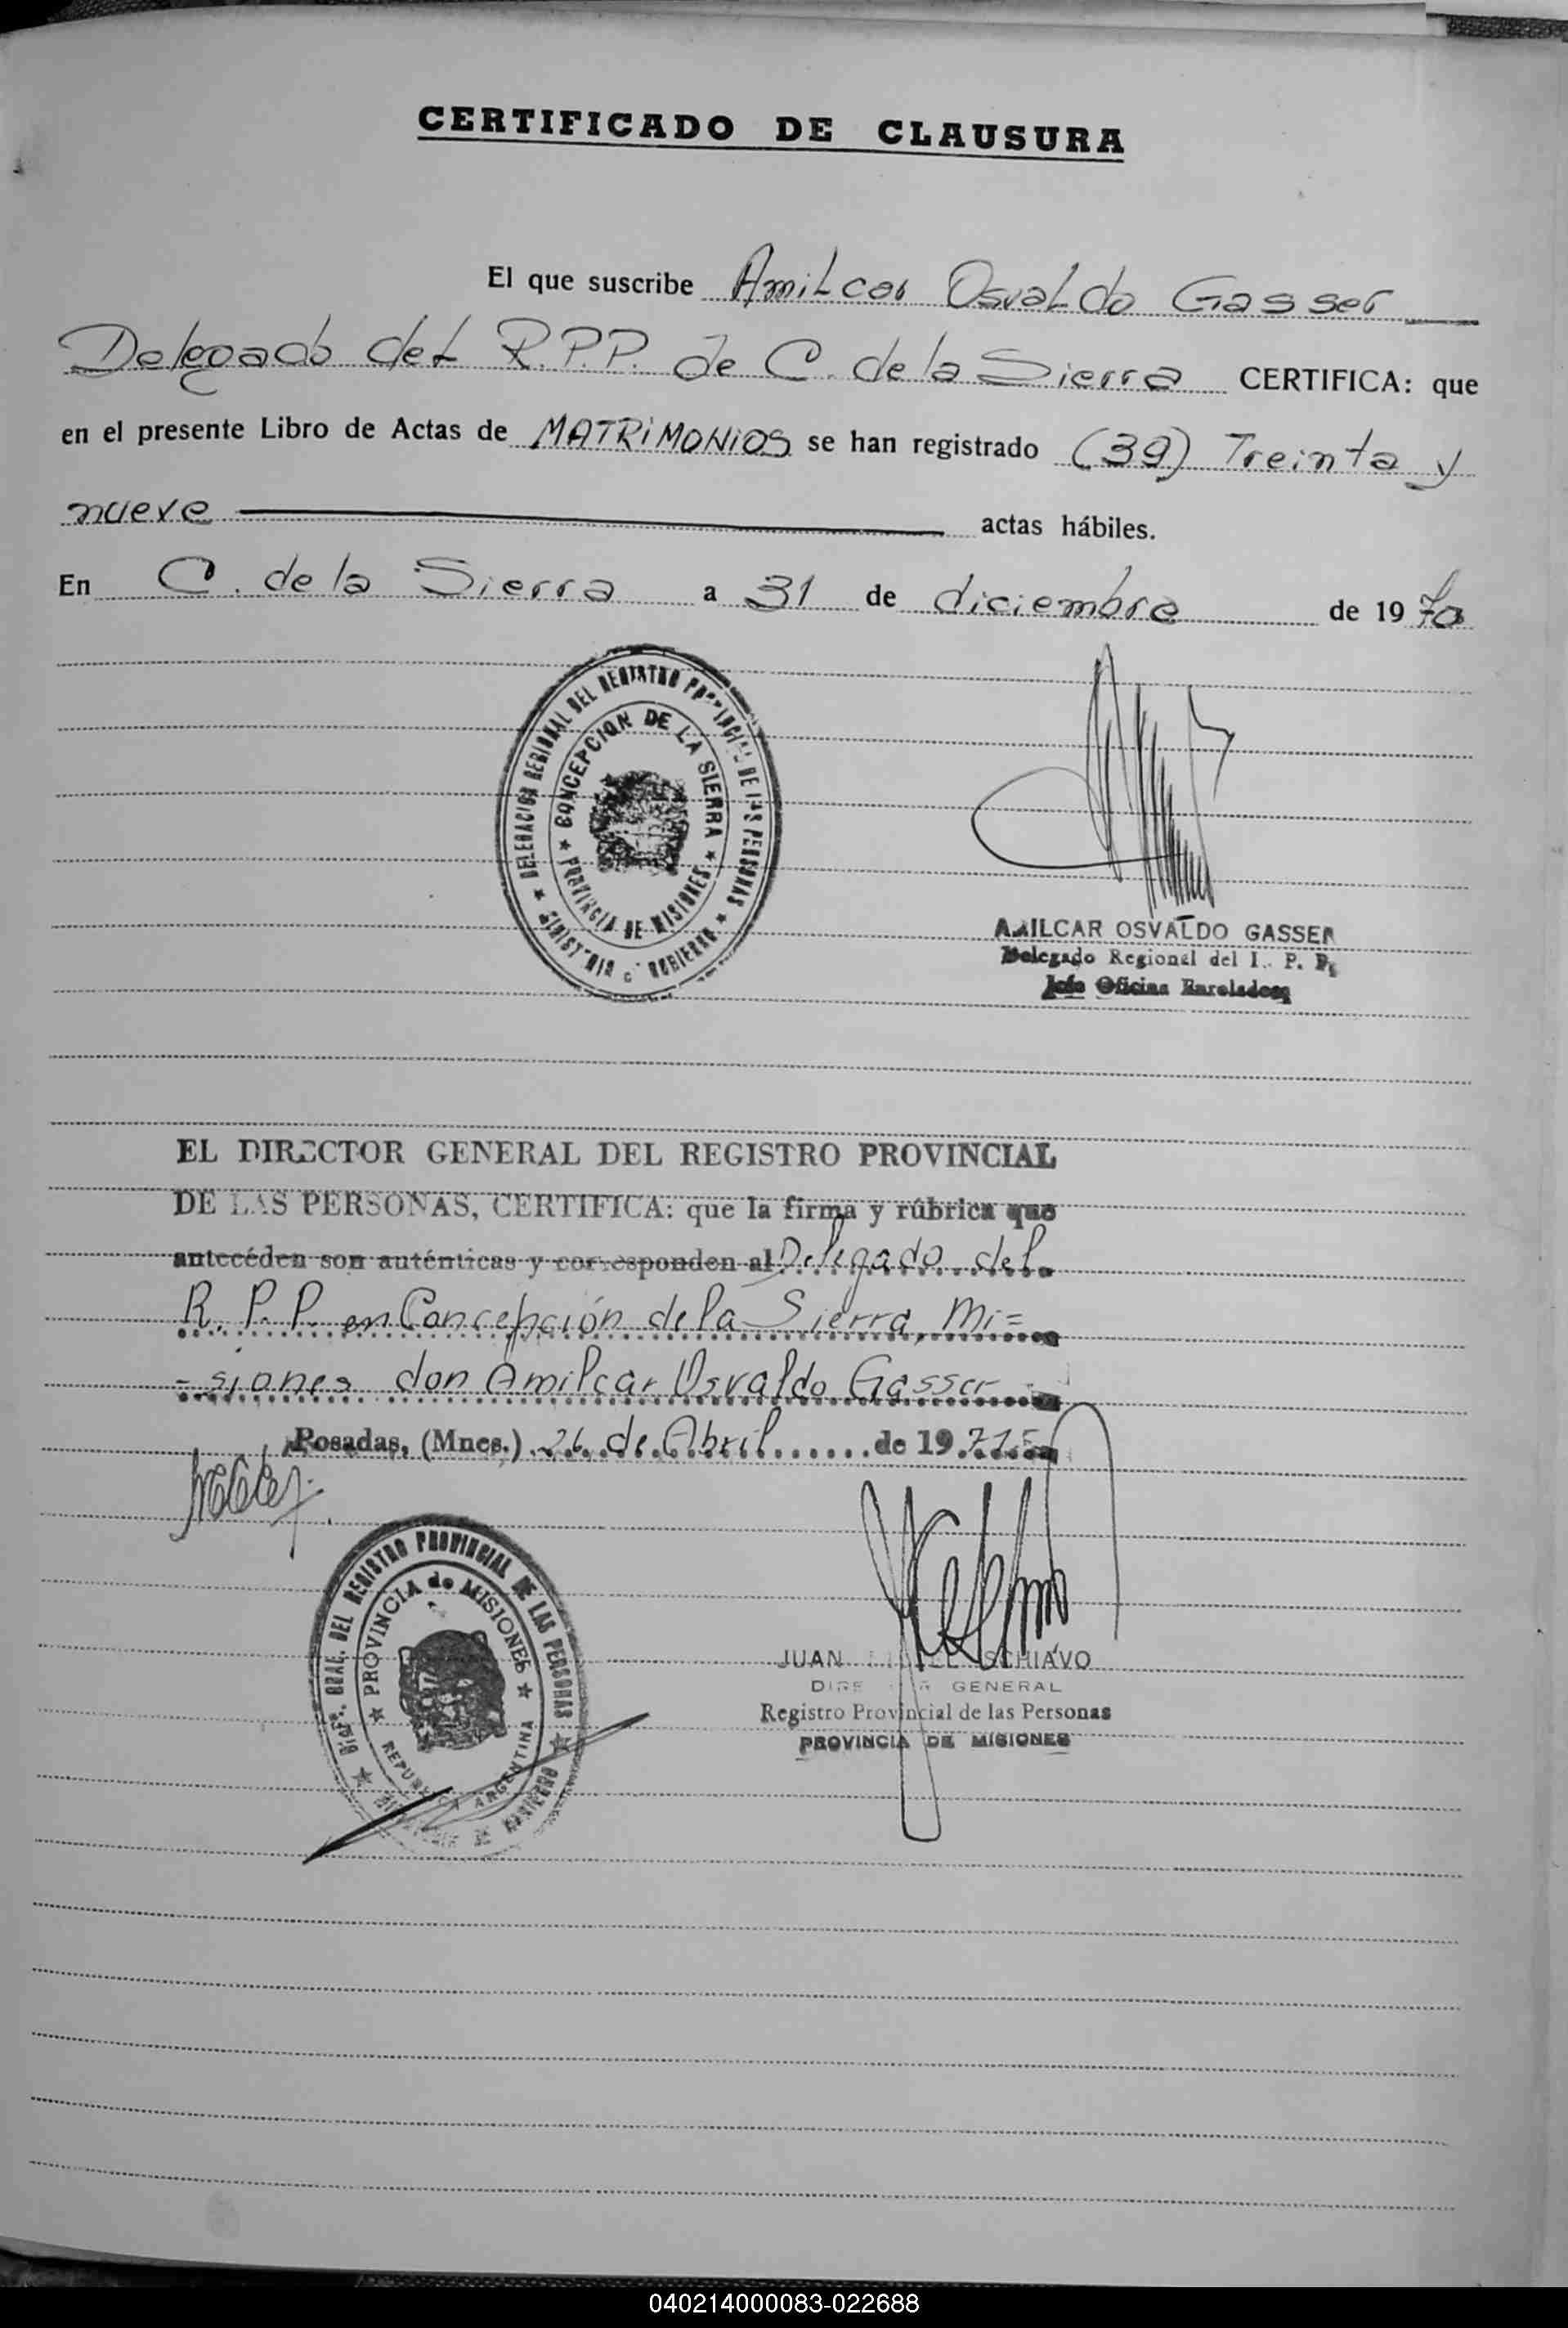 CERTIFICADO DE CLAUSURA
El que suscribe Amilcar Osvaldo Gasser
Delegado del R.P.P. de C. de la Sierra CERTIFICA: que
en el presente Libro de Actas de MATRIMONIOS se han registrado (39) Treinta y
nueve actas hábiles.
En C. de la Sierra a 31 de diciembre de 1970
DELEGACION REGIONAL DEL REGISTRO PROVINCIAL DE LAS PERSONAS
CONCEPCION DE LA SIERRA
PROVINCIA DE MISIONES
AMILCAR OSVALDO GASSER
Delegado Regional del
EL DIRECTOR GENERAL DEL REGISTRO PROVINCIAL
DE LAS PERSONAS, CERTIFICA: que la firma y rúbrica que
antecéden son auténticas y corresponden al Delegado del
R.P.P. en Concepción de la Sierra, Mi=
-siones don Amilcar Osvaldo Gasser
Posadas, (Mnes.) 26 de Abril de 1971
GRAL. DEL REGISTRO PROVINCIAL DE LAS PERSONAS
PROVINCIA de MISIONES
REPUBLICA ARGENTINA
JUAN SCHIAVO
DIRECTOR GENERAL
Registro Provincial de las Personas
PROVINCIA DE MISIONES
040214000083-022688